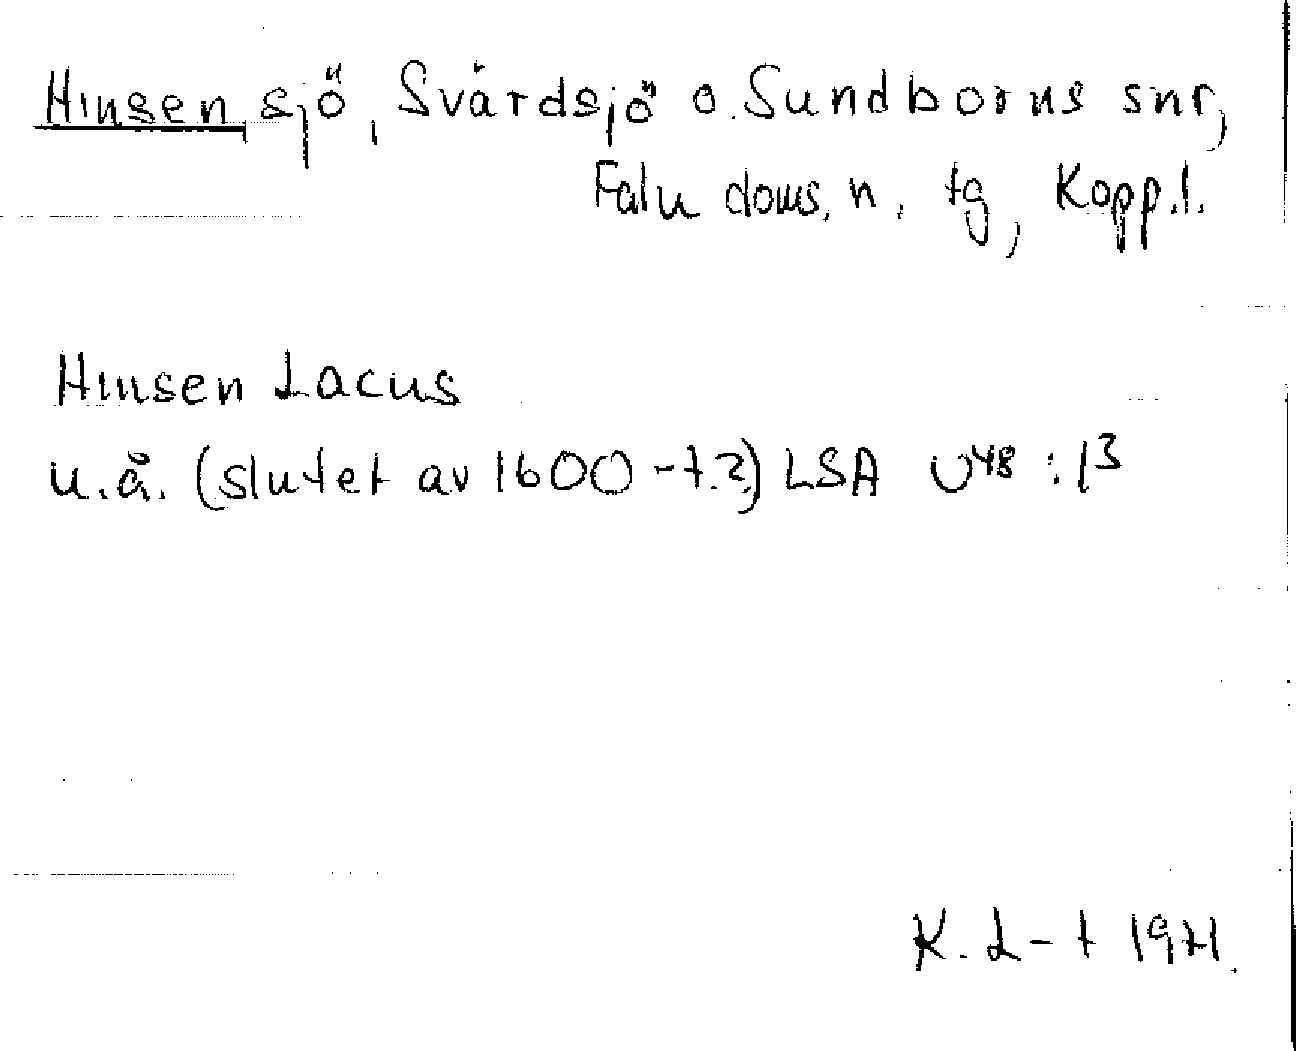 Hinsen sjö, Svärdsjö o. Sundborns snr,
Falu doms. n. tg, Kopp.l.
Hinsen Lacus
u.å. (slutet av 1600-t.?) LSA U48:13
K. L-t 1971.